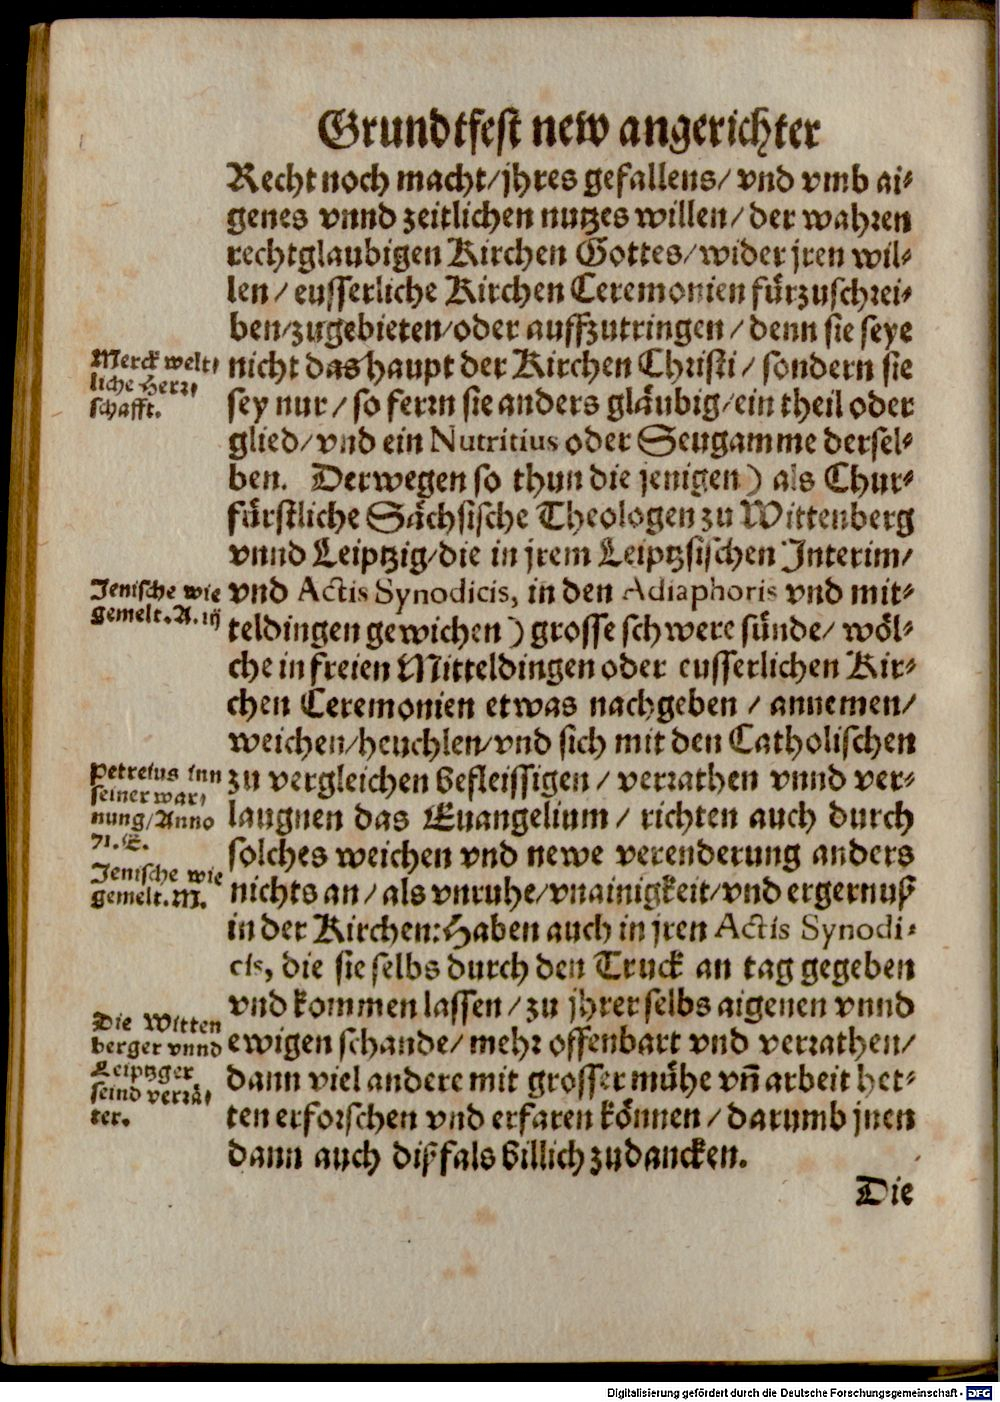 Grundtfest new angerichter
Recht noch macht/ jhres gefallens/ vnd vmb ai-
genes vnnd zeitlichen nutzes willen/ der wahren
rechtglaubigen Kirchen Gottes/ wider jren wil-
len/ eusserliche Kirchen Ceremonien fürzuschrei-
ben/ zugebieten/ oder auffzutringen/ denn sie seye
nicht das haupt der Kirchen Christi/ sondern sie
sey nur/ so ferrn sie anders gläubig/ ein theil oder
glied/ vnd ein Nutritius oder Seugamme dersel-
ben. Derwegen so thun die jenigen) als Chur-
fürstliche Sächsische Theologen zu Wittenberg
vnnd Leiptzig/ die in jrem Leiptzsischen Interim/
vnd Actis Synodicis, in den Adiaphoris vnd mit-
teldingen gewichen) grosse schwere sünde/ wöl-
che in freien Mitteldingen oder eusserlichen Kir-
chen Ceremonien etwas nachgeben/ annemen/
weichen/ heuchlen/ vnd sich mit den Catholischen
zu vergleichen befleissigen/ verrathen vnnd ver-
laugnen das Euangelium/ richten auch durch
solches weichen vnd newe verenderung anders
nichts an/ als vnruhe/ vnainigkeit/ vnd ergernuß
in der Kirchen: Haben auch in jren Actis Synodi-
cis, die sie selbs durch den Truck an tag gegeben
vnd kommen lassen/ zu jhrer selbs aigenen vnnd
ewigen schande/ mehr offenbart vnd verrathen/
dann viel andere mit grosser mühe vñ arbeit het-
ten erforschen vnd erfaren können/ darumb jnen
dann auch dißfals billich zudancken.
Die
Merck welt-
liche Herr-
schafft.
Jenische wie
gemelt. A. iij
Petreius inn
seiner war-
nung/ Anno
71. E.
Jenische wie
gemelt. M.
Die Witten
berger vnnd
Leiptzger
seind verrä-
ter.
Digitalisierung gefördert durch die Deutsche Forschungsgemeinschaft - DFG